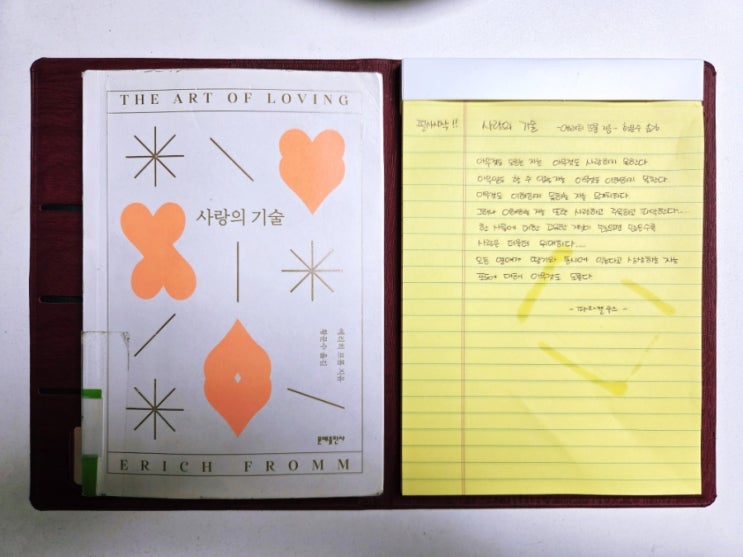 THE ART OF LOVING
사랑의 기술
에리히 프롬 지음
황문수 옮김
문예출판사
ERICH FROMM
필사시작!! 사랑의 기술 -에리히 프롬 지음- 황문수 옮김
아무것도 모르는 자는 아무것도 사랑하지 못한다.
아무일도 할 수 없는 자는 아무것도 이해하지 못한다.
아무것도 이해하지 못하는 자는 무가치하다
그러나 이해하는 자는 또한 사랑하고 주목하고 파악한다....
한 사물에 대한 고유한 지식이 많으면 많을수록
사랑은 더욱더 위대하다....
모든 열매가 딸기와 동시에 익는다고 상상하는 자는
포도에 대해 아무것도 모른다.
-파라켈수스-